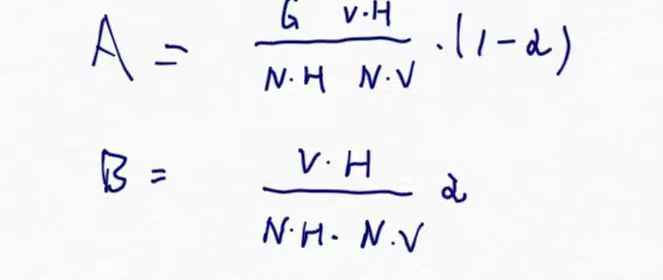 A = G V·H / N·H N·V · (1-α)
B = V·H / N·H· N·V α